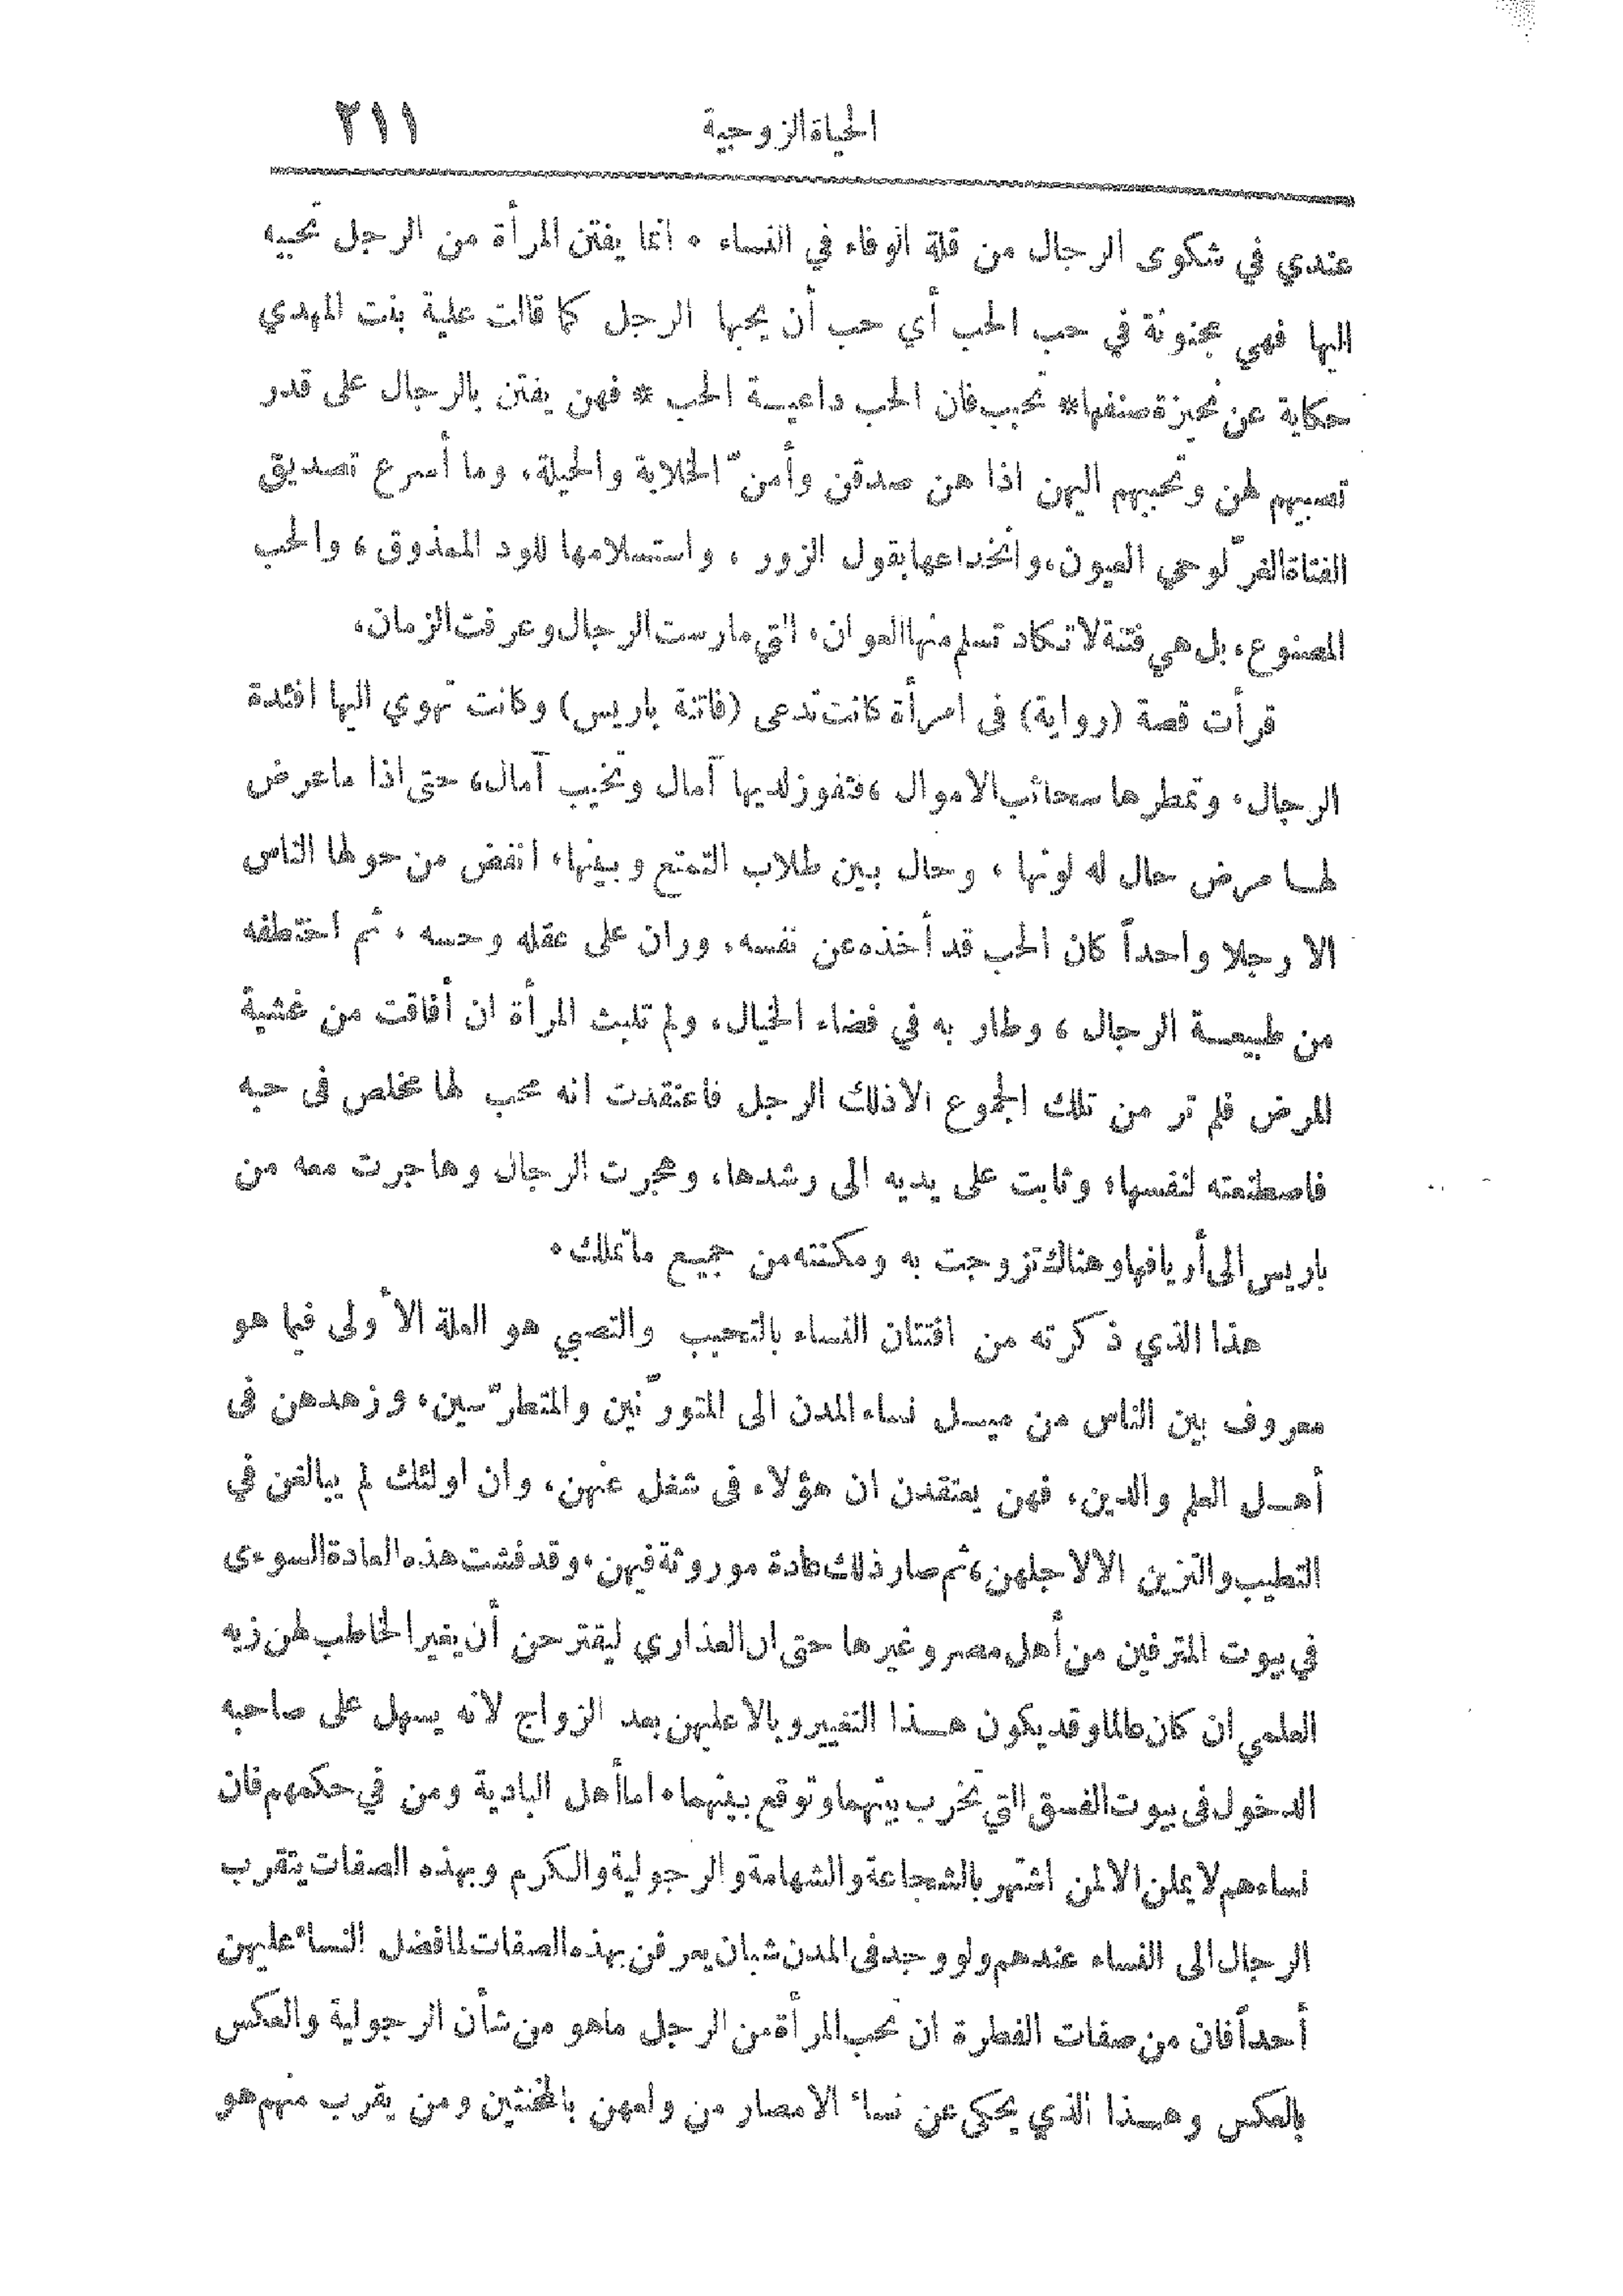 الحياة الزوجية
٢١١
عندي في شكوى الرجال من قلة الوفاء في النساء . انما يفتن المرأة من الرجل تحببه
اليها فهي مجنونة في حب الحب أي حب أن يحبها الرجل كما قالت علية بنت المهدي
حكاية عن نحيزة صنفها* تحبب فان الحب داعيـة الحب * فهن يفتن بالرجال على قدر
تصبيهم لهن وتحببهم اليهن اذا هن صدقن وأمنّ الخلابة والحيلة، وما أسرع تصديق
الفتاة الغرّ لوحي العيون، وانخداعها بقول الزور ، واستسلامها للود الممذوق ، والحب
المصنوع، بل هي فتنة لا تكاد تسلم منها العوان، التي مارست الرجال وعرفت الزمان،
قرأت قصة (رواية) في امرأة كانت تدعى (فاتنة باريس) وكانت تهوي اليها افئدة
الرجال، وتمطرها سحائب الاموال ، فتفوز لديها آمال وتخيب آمال، حتى اذا ما عرض
لهـا مرض حال له لونها ، وحال بين طلاب التمتع وبينها، انفض من حولها الناس
الا رجلا واحداً كان الحب قد أخذه عن نفسه، وران على عقله وحسه ، ثم اختطفه
من طبيعـة الرجال ، وطار به في فضاء الخيال، ولم تلبث المرأة ان أفاقت من غشية
المرض فلم تر من تلك الجموع الا ذلك الرجل فاعتقدت انه محب لها مخلص في حبه
فاصطنعته لنفسها، وثابت على يديه الى رشدها، وهجرت الرجال وهاجرت معه من
باريس الى أريافها وهناك تزوجت به ومكنته من جميع ما تملك .
هذا الذي ذكرته من افتتان النساء بالتحبب والتصبي هو العلة الأولى فيما هو
معروف بين الناس من ميـل نساء المدن الى المتورّنين والمتطرّسين، وزهدهن في
أهـل العلم والدين، فهن يعتقدن ان هؤلاء في شغل عنهن، وان اولئك لم يبالغن في
التطيب والتزين الا لاجلهن ، ثم صار ذلك عادة موروثة فيهن، وقد فشت هذه العادة السوءى
في بيوت المترفين من أهل مصر وغيرها حتى ان العذارى ليقترحن أن يغير الخاطب لهن زيه
العلمي ان كان عالما وقد يكون هـذا التغيير وبالا عليهن بعد الزواج لانه يسهل على صاحبه
الدخول في بيوت الفسق التي تخرب بيتهما وتوقع بينهما. اما أهل البادية ومن في حكمهم فان
نساءهم لا يملن الا لمن اشتهر بالشجاعة والشهامة والرجولية والكرم وبهذه الصفات يتقرب
الرجال الى النساء عندهم ولو وجد في المدن شبان يعرفن بهذه الصفات لما فضل النساء عليهن
أحداً فان من صفات الفطرة ان تحب المرأة من الرجل ما هو من شأن الرجولية والعكس
بالعكس وهـذا الذي يحكى عن نساء الامصار من ولعهن بالمخنثين ومن يقرب منهم هو